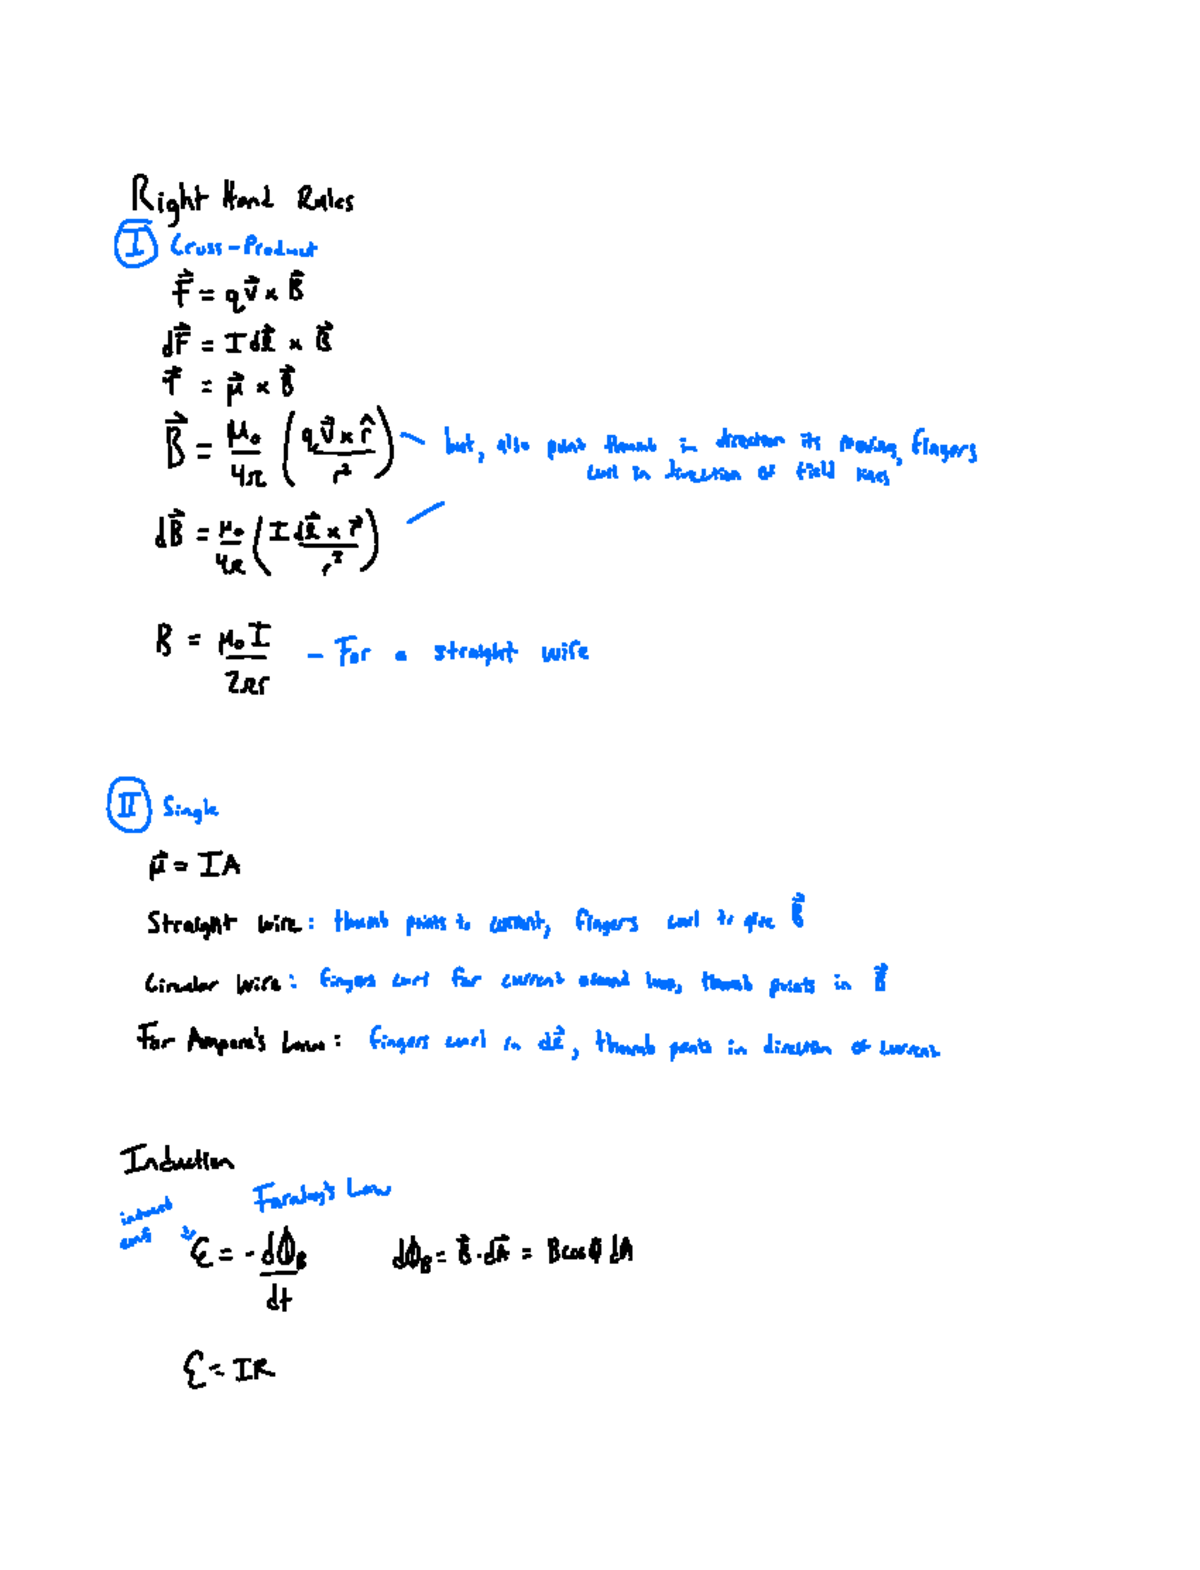 Right Hand Rules
I Cross-Product
F⃗ = qv⃗ × B⃗
dF⃗ = I dl⃗ × B⃗
τ⃗ = μ⃗ × B⃗
B⃗ = μ₀/4π (qv⃗ × r̂ / r²) but, also point thumb in direction its moving, fingers
curl in direction of field lines
dB⃗ = μ₀/4π (I dl⃗ × r⃗ / r²)
B = μ₀I / 2πr – For a straight wire
II Single
μ⃗ = IA
Straight wire: thumb points to current, fingers curl to give B⃗
Circular Wire: fingers curl for current around loop, thumb points in B⃗
For Ampere's Law: fingers curl in dl⃗, thumb points in direction of current
Induction
induced emf Faraday's Law
ℰ = - dΦB / dt dΦB = B⃗ · dA⃗ = B cos φ dA
ℰ = IR